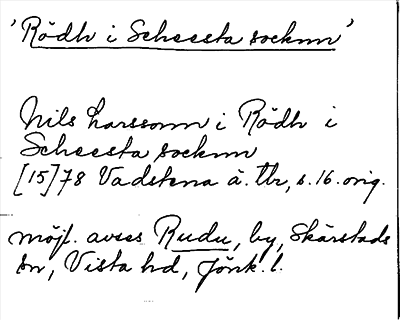 'Rödh i Scheesta socknn'
Nils Larssonn i Rödh i
Scheesta socknn
[15]78 Vadstena ä. tbr, s. 16. orig.
möjl. avses Rudu, by, Skärstads
sn, Vista hd, Jönk. l.